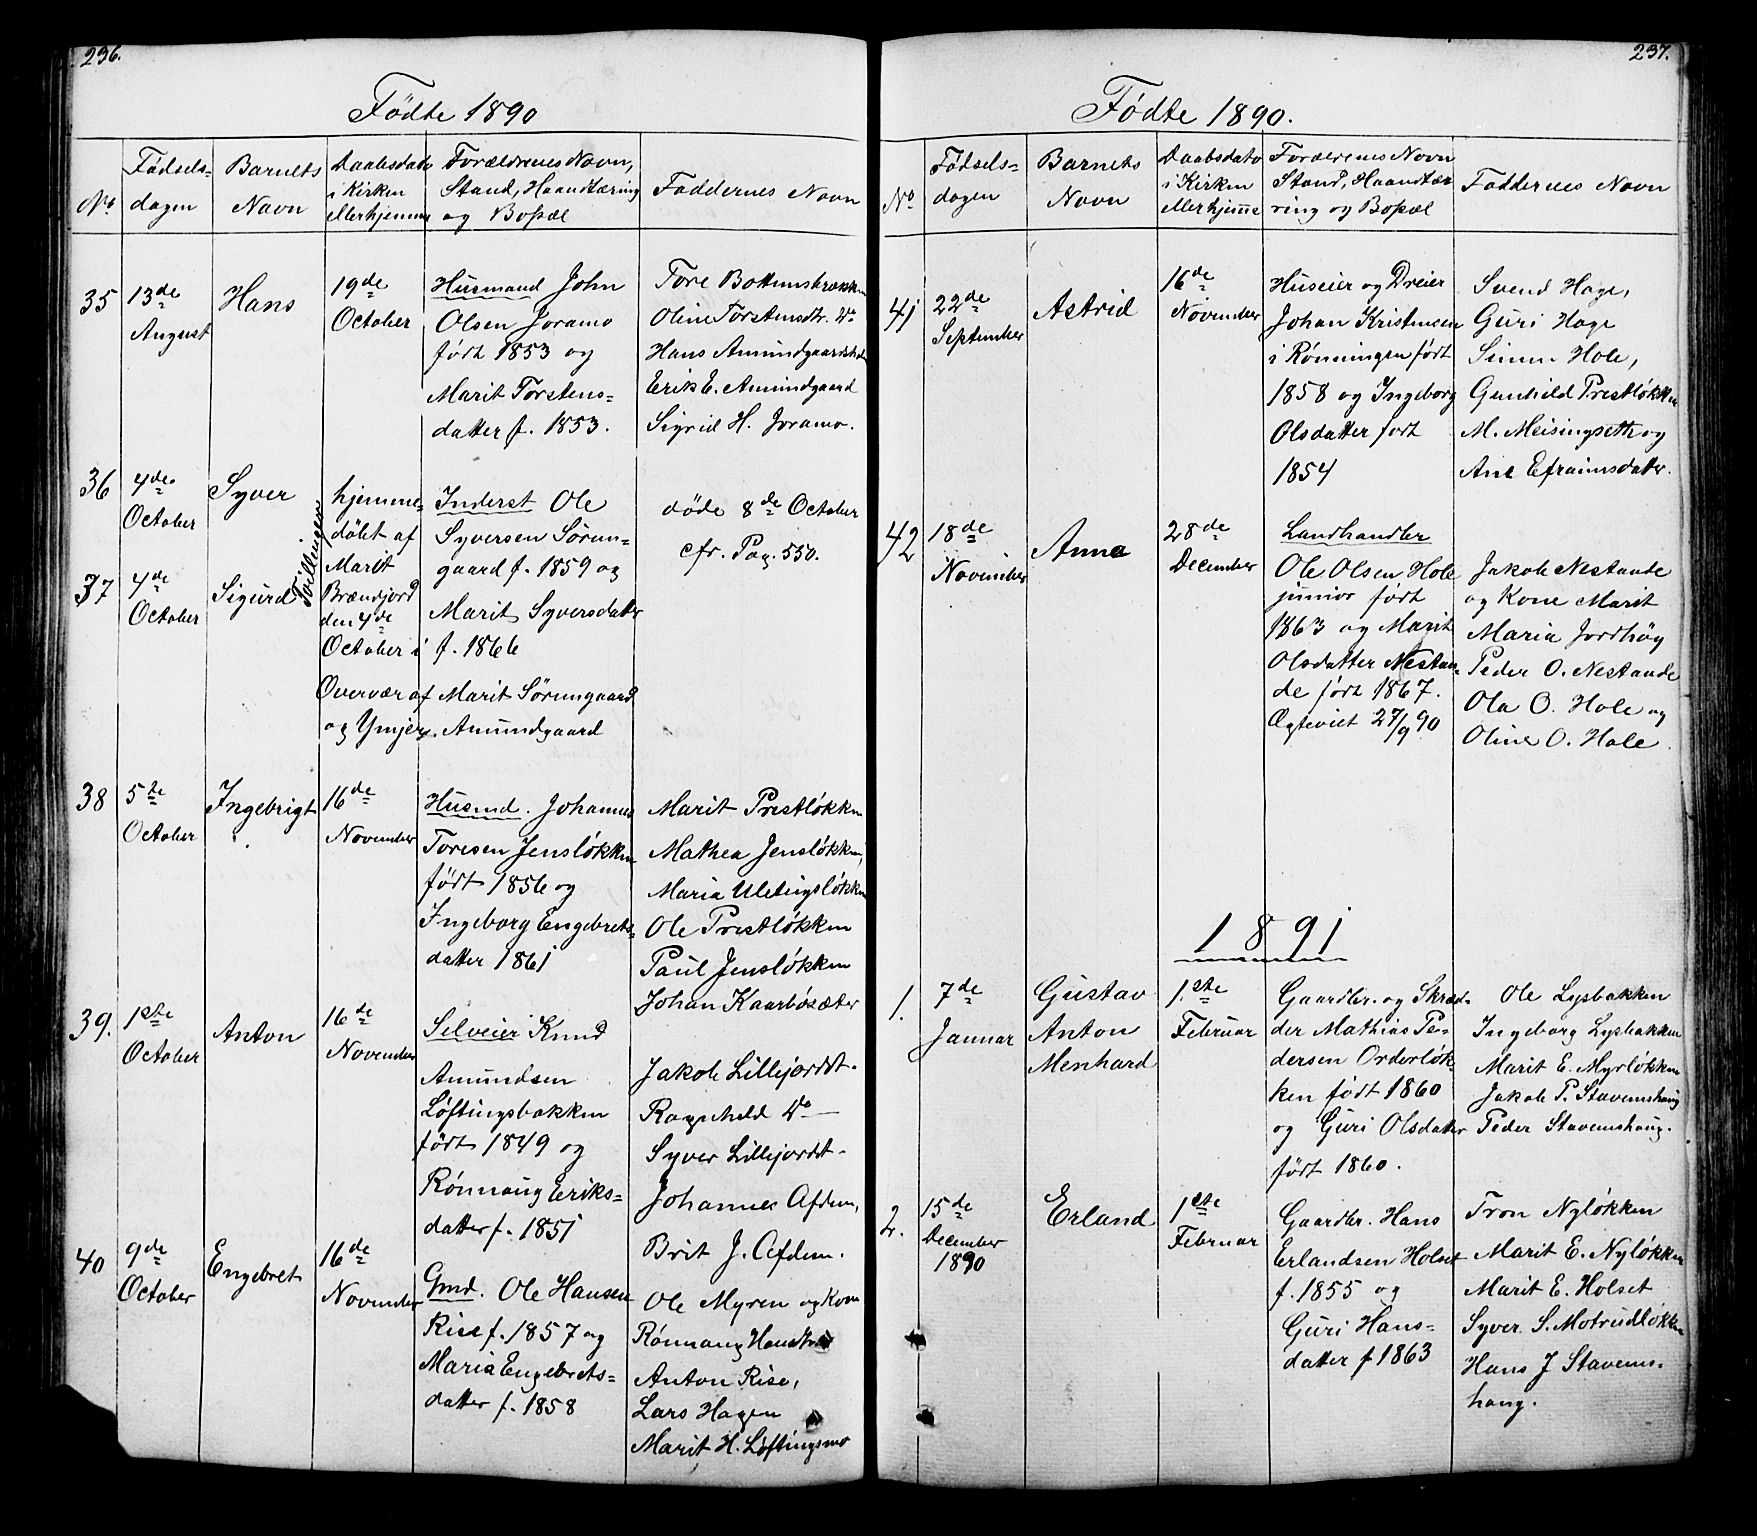 236.
Födte 1890
No
Fødsels-
dagen
Barnets
Navn
Daabsdato
i Kirken
eller hjemme
Forældrenes Navn,
Stand, Haandtæring
og Bopæl
Faddernes Navn
35
13de
August
Hans
19de
October
Husmand John
Olsen Joramo
født 1853 og
Marit Torstens-
datter f. 1853.
Tore
Oline Torstensdtr. Do
Hans
Erik E. Amundgaard
Sigrid H. Joramo.
36
4de
October
Syver
37
4de
October
Sigurd
Tvillinger
hjemme-
döbt af
Marit
Brændjord
den 4de
October i
Overvær af Marit Sörumgaard
og Amundgaard
Inderst Ole
Syversen Sörum-
gaard f. 1859 og
Marit Syversdatter
f. 1866
döde 8de October
cfr. Pag. 550.
38
5te
October
Ingebrigt
16de
November
Husmd. Johannes
Toresen Jensløkken
født 1856 og
Ingeborg Engebrets-
datter 1861
Marit Prestløkken
Mathea Jensløkken,
Maria
Ole Prestløkken
Paul Jensløkken
Johan Kaarbøsæter
39.
1ste
October
Anton
16de
November
Selveier Knud
Amundsen
Løftingsbakken
født 1849 og
Rönnaug Eriks-
datter f. 1851
Jakob Lillejordt.
Ragnhild Do
Syver Lillejordt.
Johannes Afdem,
Brit J. Afdem.
40
9de
October
Engebret
16de
November
Gmd. Ole Hansen
Rise f. 1857 og
Maria Engebrets-
datter f. 1858
Ole Myren og Kone
Rönnaug
Anton Rise,
Lars Hagen
Marit H. Løftingsmo
237.
Födte 1890.
No
Fødsels-
dagen
Barnets
Navn
Daabsdato
i Kirken
eller hjemme
Forældrenes Navn
Stand, Haandtæ
ring og Bopæl
Faddernes Navn
41
22de
September
Astrid
16de
November
Huseier og Dreier
Johan Kristensen
i Rønningen født
1858 og Ingeborg
Olsdatter født
1854
Svend Hage,
Guri Hage
Simen Hole,
Gunhild Prestløkken
M. Meisingseth og
Ane Efraimsdatter.
42
18de
November
Anne
28de
December
Landhandler
Ole Olsen Hole
junior født
1863 og Marit
Olsdatter Nestan-
de født 1867.
Ægteviet 27/9 90
Jakob Nestande
og Kone Marit
Maria Jordhøy
Peder O. Nestande
Ola O. Hole og
Oline O. Hole.
1891
1.
7de
Januar
Gustav
Anton
Menhard
1.ste
Februar
Gaardbr. og Skræd-
der Mathias Pe-
dersen Orderløk-
ken født 1860
og Guri Olsdatter
født 1860.
Ole Lysbakken
Ingeborg Lysbakken
Marit E. Myrløkken
Jakob P. Stavemshaug
Peder Stavemshaug.
2.
15de
December
1890
Erland
1ste
Februar
Gaardbr. Hans
Erlandsen Holset
f. 1855 og
Guri Hans-
datter f 1863
Tron Nyløkken
Marit E. Nyløkken
Marit E. Holset
Syver S. Motrudløkken
Hans J Stavems-
haug.